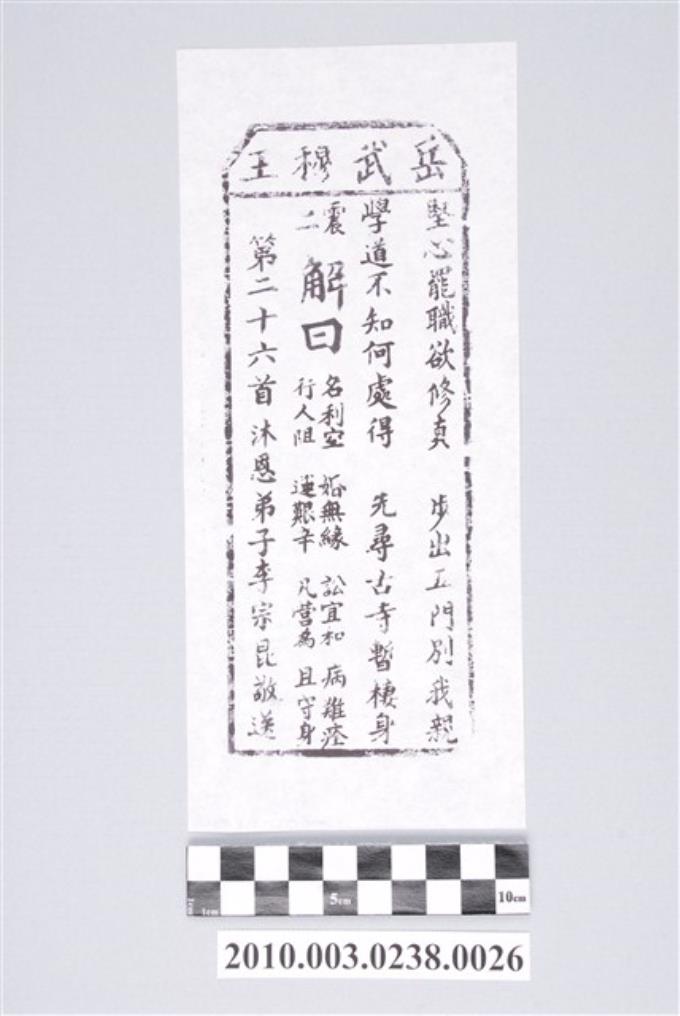 岳武穆王
堅心罷職欲修真　步出五門別我親
學道不知何處得　先尋古寺暫棲身
震二
解曰
名利空　婚無緣　訟宜和　病難痊
行人阻　運艱辛　凡營為　且守身
第二十六首　沐恩弟子李宗昆敬送
1cm 5cm 10cm
2010.003.0238.0026